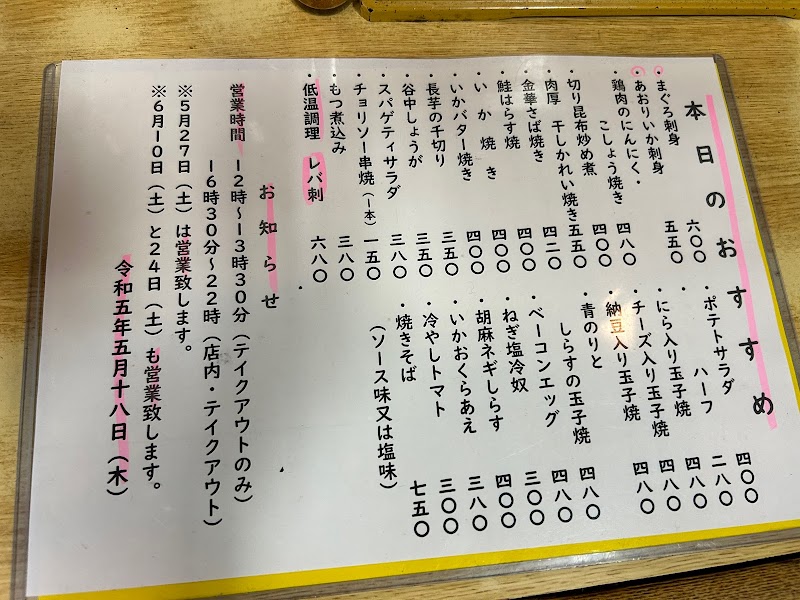 本日のおすすめ
・まぐろ刺身 六〇〇
・あおりいか刺身 五五〇
・鶏肉のにんにく・
こしょう焼き 四八〇
・切り昆布炒め煮 四〇〇
・肉厚 干しかれい焼き 五五〇
・金華さば焼き 四二〇
・鮭はらす焼 四〇〇
・いか焼き 四〇〇
・いかバター焼き 四〇〇
・長芋の千切り 三五〇
・谷中しょうが 三五〇
・スパゲティサラダ 三八〇
・チョリソー串焼(一本) 一五〇
・もつ煮込み 三八〇
・低温調理 レバ刺 六八〇
・ポテトサラダ 四〇〇
ハーフ 二八〇
・にら入り玉子焼 四八〇
・チーズ入り玉子焼 四八〇
・納豆入り玉子焼 四八〇
・青のりと
しらすの玉子焼 四八〇
・ベーコンエッグ 四八〇
・ねぎ塩冷奴 三〇〇
・胡麻ネギしらす 四〇〇
・いかおくらあえ 三八〇
・冷やしトマト 三〇〇
・焼きそば 七五〇
(ソース味又は塩味)
お知らせ
営業時間 12時〜13時30分(テイクアウトのみ)
16時30分〜22時(店内・テイクアウト)
※5月27日(土)は営業致します。
※6月10日(土)と24日(土)も営業致します。
令和五年五月十八日(木)